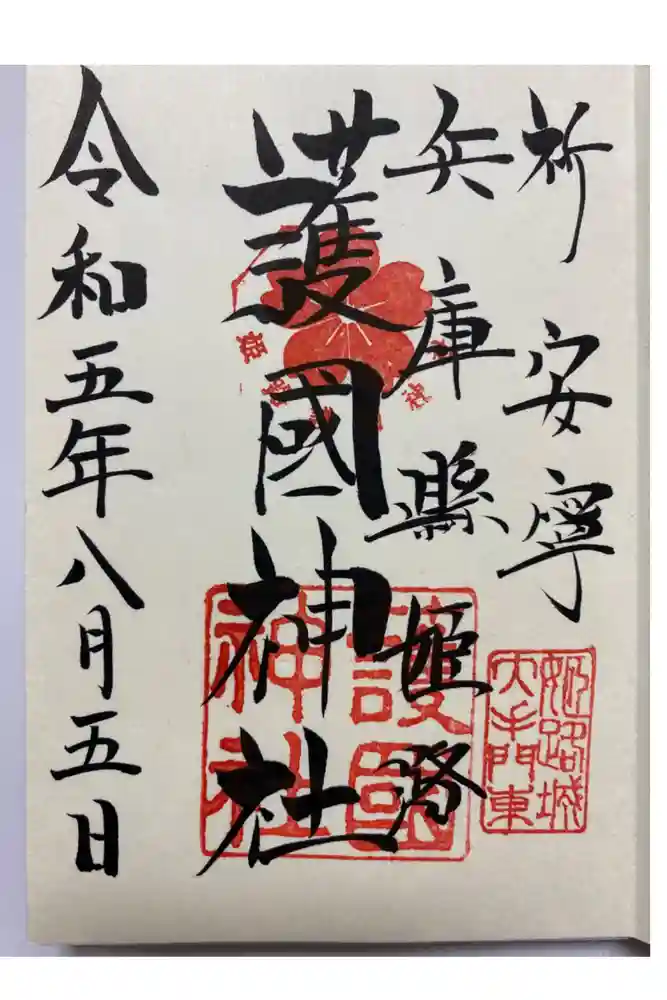 祈安寧
兵庫縣姫路
護國神社
令和五年八月五日
護國神社
姫路城
大手門東